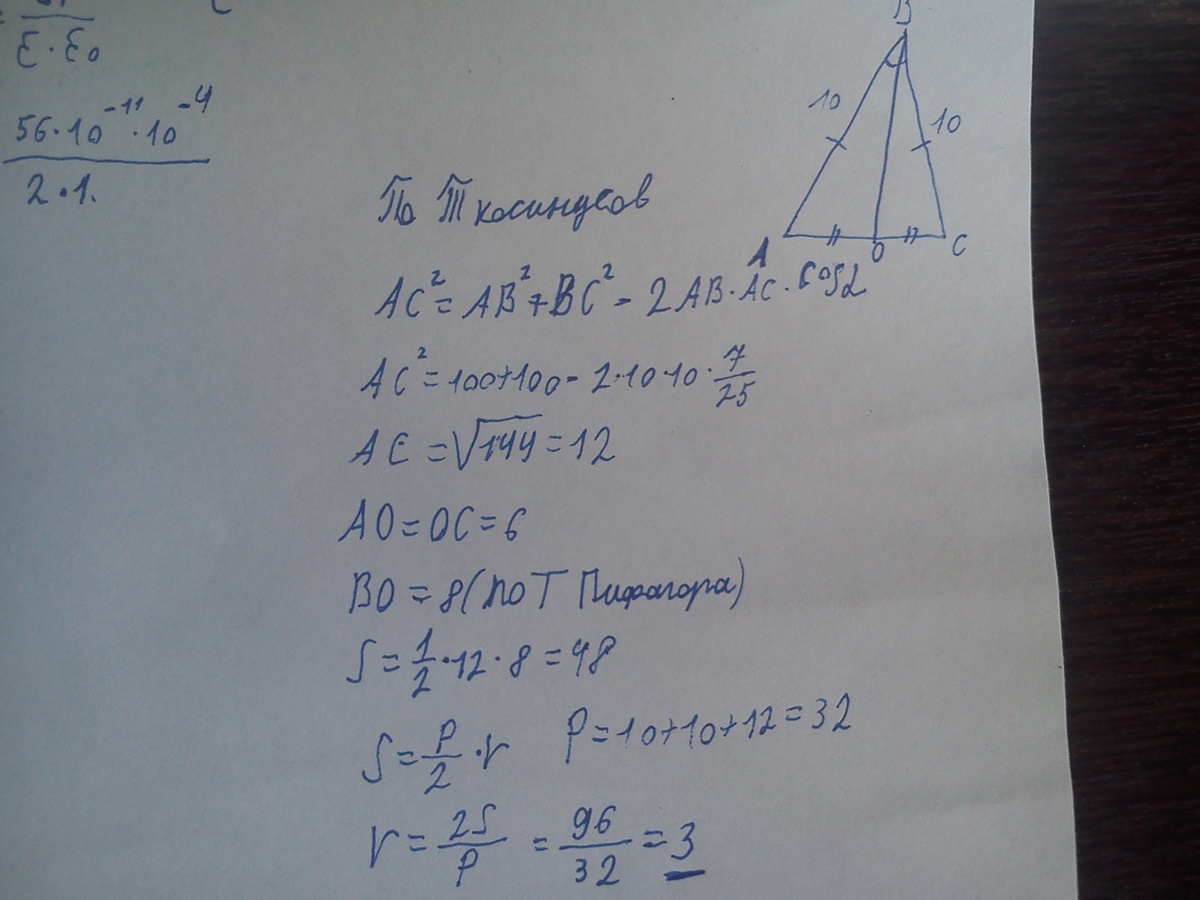 ε · ε₀
56·10⁻¹¹·10⁻⁴
2·1.
B
10
10
A
O
C
По Т косинусов
AC² = AB² + BC² - 2AB·AC·cosα
AC² = 100+100 - 2·10·10·7/25
AC = √144 = 12
AO = OC = 6
BO = 8 (по Т Пифагора)
S = 1/2 · 12 · 8 = 48
S = P/2 · r P = 10+10+12 = 32
r = 2S/P = 96/32 = 3